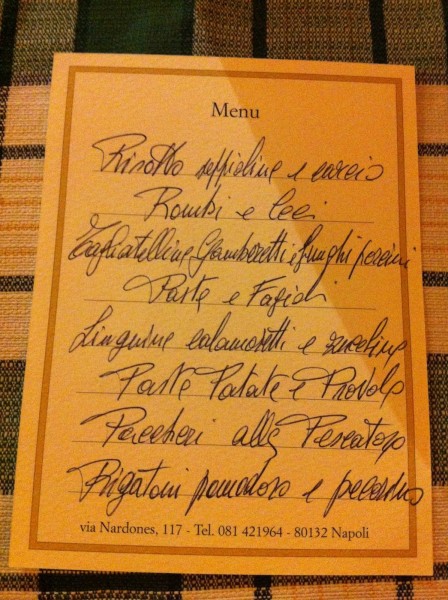 Menu
Risotto seppioline e
Rombi e Ceci
Tagliatelline Gamberetti e funghi porcini
Pasta e Fagioli
Linguine calamaretti e zucchine
Pasta Patate e Provola
Paccheri alla Pescatora
Rigatoni pomodoro e pecorino
via Nardones, 117 - Tel. 081 421964 - 80132 Napoli